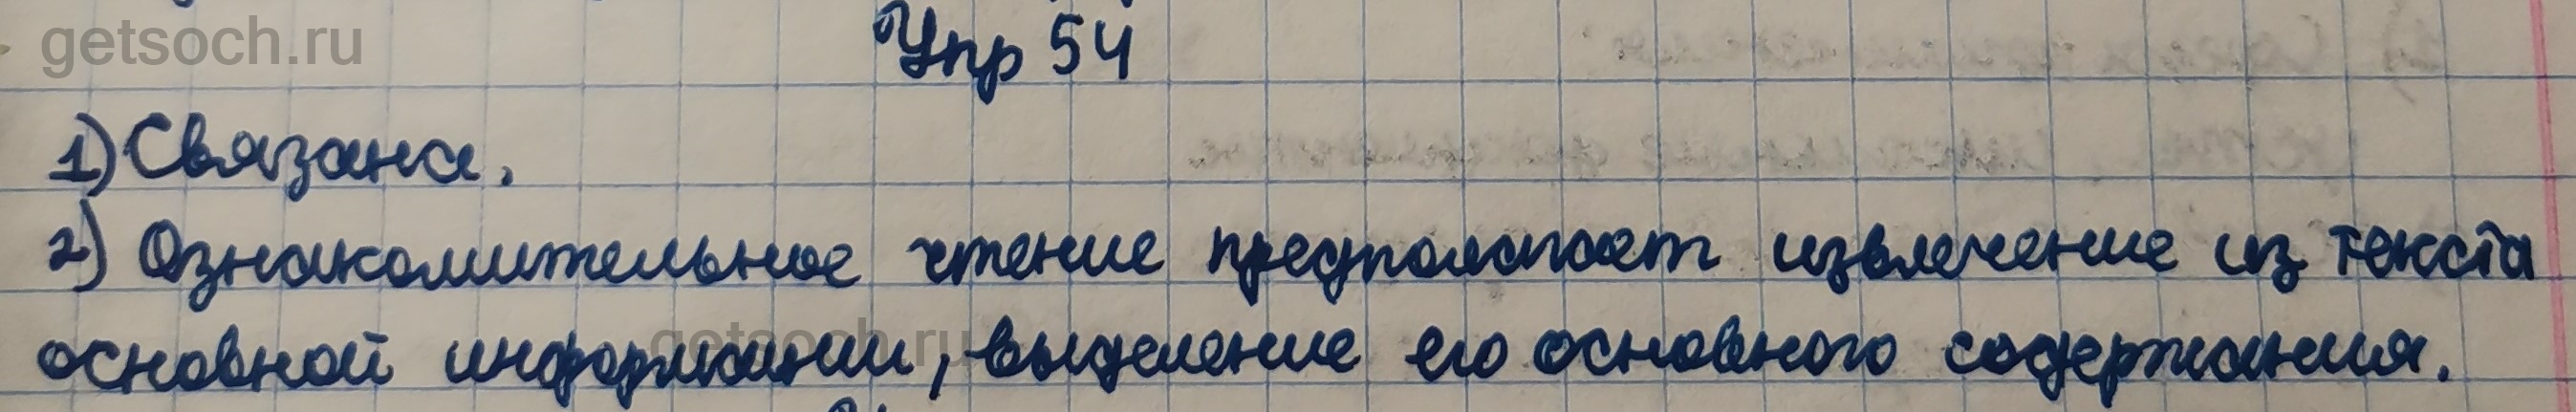 getsoch.ru
Упр 54
1) Связана.
2) Ознакомительное чтение предполагает извлечение из текста
getsoch.ru
основной информации, выделение его основного содержания.